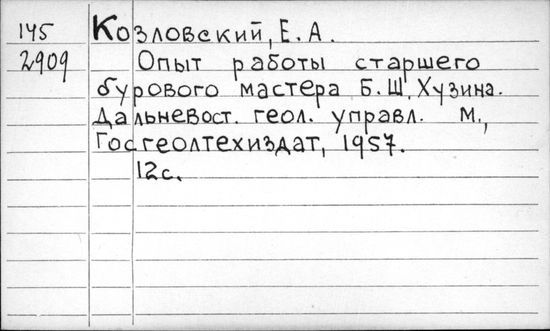 145 Козловский, Е. А.
2909 Опыт работы старшего
бурового мастера Б. Ш. Хузина.
Дальневост. геол. управл. М.,
Госгеолтехиздат, 1957.
12с.